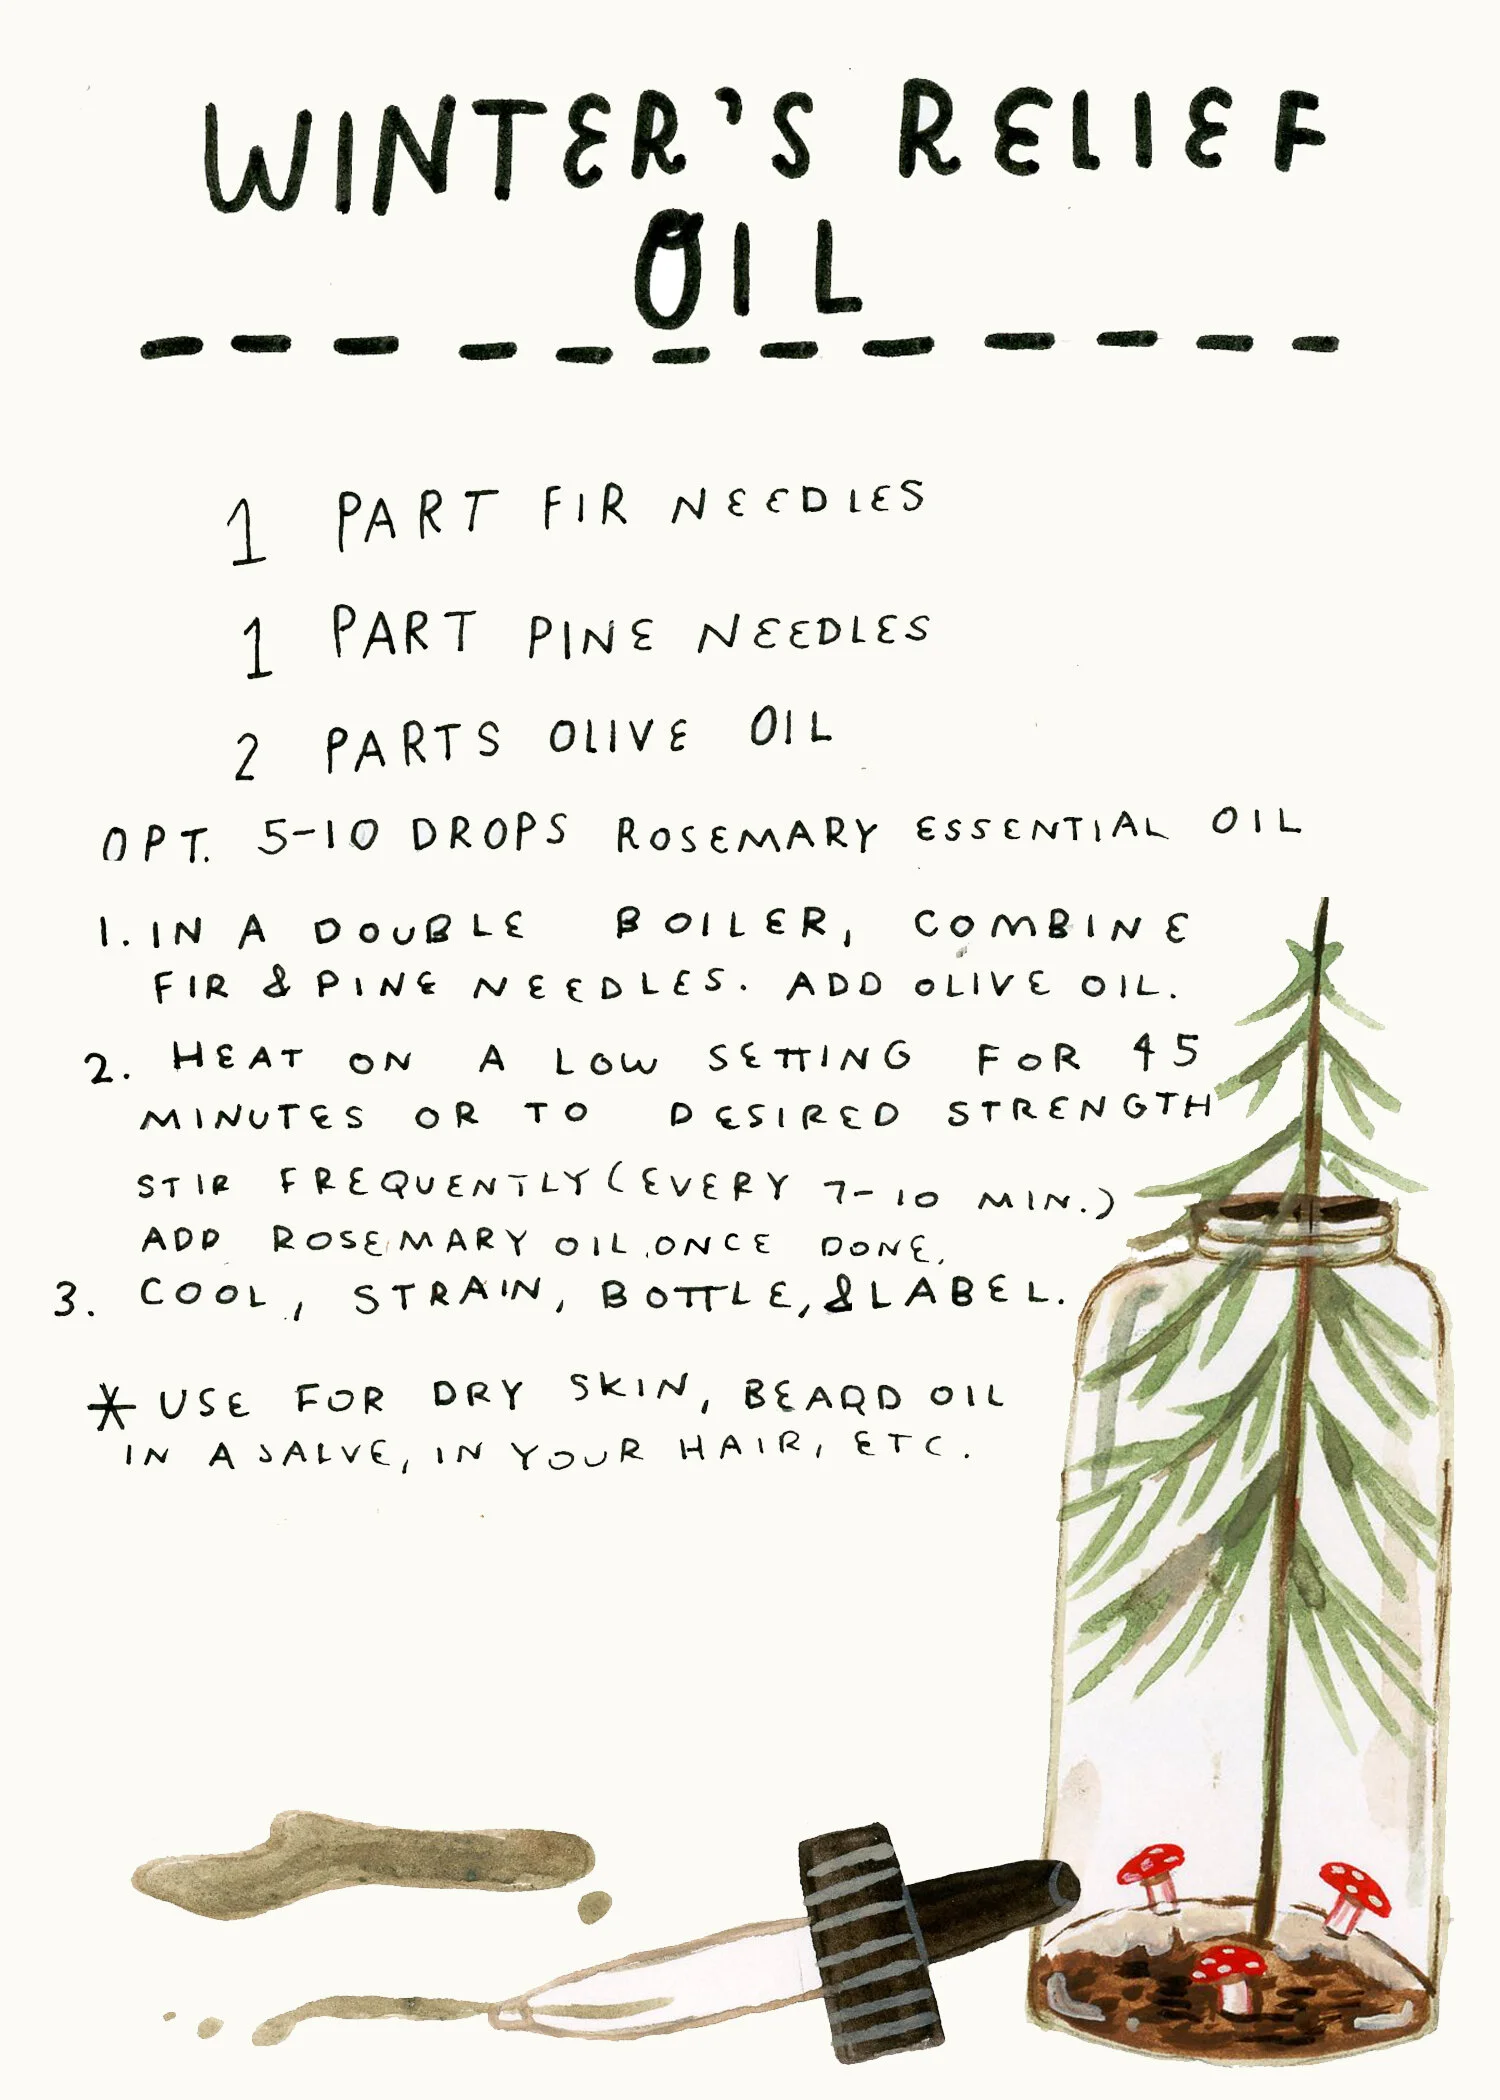 WINTER'S RELIEF
OIL
1 PART FIR NEEDLES
1 PART PINE NEEDLES
2 PARTS OLIVE OIL
OPT. 5-10 DROPS ROSEMARY ESSENTIAL OIL
1. IN A DOUBLE BOILER, COMBINE
FIR & PINE NEEDLES. ADD OLIVE OIL.
2. HEAT ON A LOW SETTING FOR 45
MINUTES OR TO DESIRED STRENGTH
STIR FREQUENTLY (EVERY 7-10 MIN.)
ADD ROSEMARY OIL ONCE DONE.
3. COOL, STRAIN, BOTTLE, & LABEL.
* USE FOR DRY SKIN, BEARD OIL
IN A SALVE, IN YOUR HAIR, ETC.